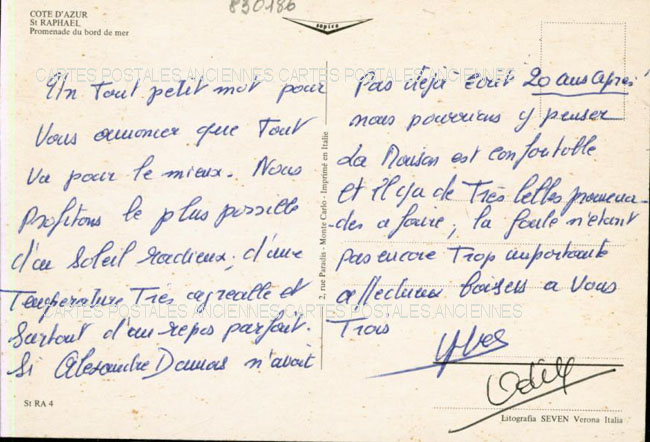 COTE D'AZUR
St RAPHAEL
Promenade du bord de mer
830186
CARTES POSTALES ANCIENNES CARTES POSTALES ANCIENNES
Un Tout petit mot pour
Vous annoncer que Tout
va pour le mieux. Nous
Profitons le plus possible
d'un soleil radieux, d'une
Température Très agréable et
surtout d'un repos parfait.
Si Alexandre Dumas n'avait
St RA 4
2, rue Paradis - Monte Carlo - Imprimé en Italie
Pas déjà écrit 20 ans après
nous pourrions y penser
La Maison est confortable
et il y a de Très belles promena-
des a faire, la foule n'étant
pas encore Trop importante
affectueux baisers a Vous
Trois
Yves
Odile
Litografia SEVEN Verona Italia